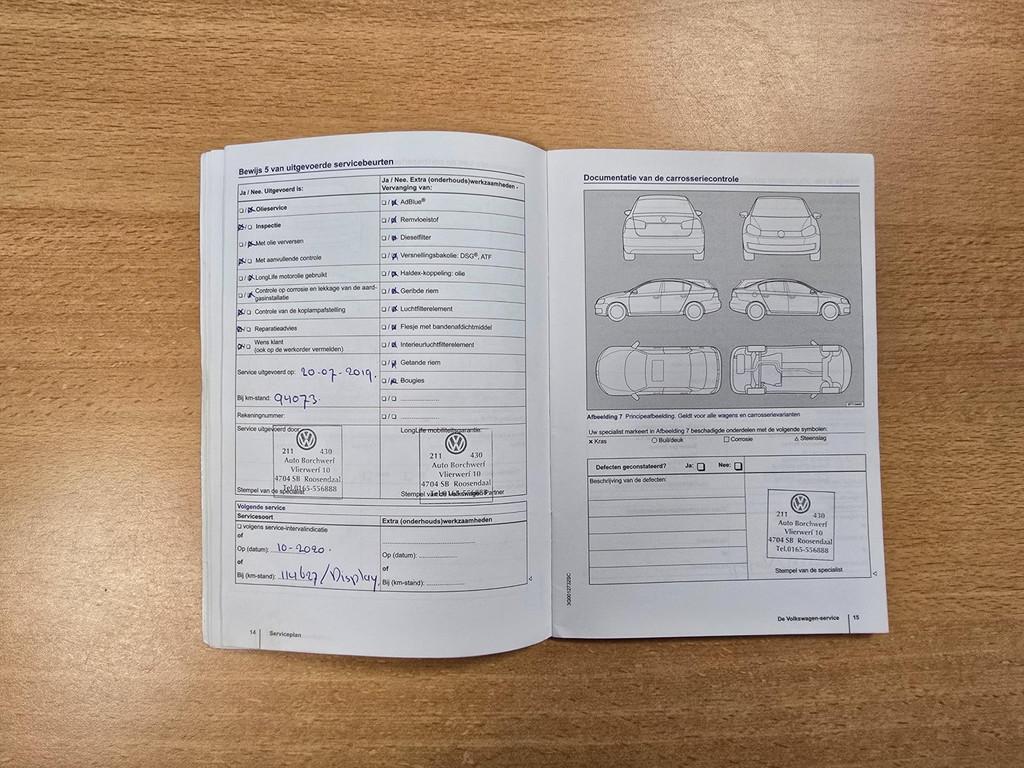 Bewijs 5 van uitgevoerde servicebeurten
Ja / Nee. Uitgevoerd is:
Olieservice
Inspectie
Met olie verversen
Met aanvullende controle
LongLife motorolie gebruikt
Controle op corrosie en lekkage van de aard-
gasinstallatie
Controle van de koplampafstelling
Reparatieadvies
Wens klant
(ook op de werkorder vermelden)
Service uitgevoerd op: 20-07-2019.
Bij km-stand: 94073.
Rekeningnummer:
Service uitgevoerd door:
211 430
Auto Borchwerf
Vlierwerf 10
4704 SB Roosendaal
Tel.0165-556888
Stempel van de specialist
Ja / Nee. Extra (onderhouds)werkzaamheden -
Vervanging van:
AdBlue®
Remvloeistof
Dieselfilter
Versnellingsbakolie: DSG®, ATF
Haldex-koppeling: olie
Geribde riem
Luchtfilterelement
Flesje met bandenafdichtmiddel
Interieurluchtfilterelement
Getande riem
Bougies
LongLife mobiliteitsgarantie:
211 430
Auto Borchwerf
Vlierwerf 10
4704 SB Roosendaal
Tel.0165-556888
Stempel van de Volkswagen Partner
Volgende service
Servicesoort
volgens service-intervalindicatie
of
Op (datum): 10-2020.
of
Bij (km-stand): 114627/Display
Extra (onderhouds)werkzaamheden
Op (datum):
of
Bij (km-stand):
14 Serviceplan
Documentatie van de carrosseriecontrole
Afbeelding 7 Principeafbeelding. Geldt voor alle wagens en carrosserievarianten
Uw specialist markeert in Afbeelding 7 beschadigde onderdelen met de volgende symbolen:
× Kras ○ Buil/deuk □ Corrosie △ Steenslag
Defecten geconstateerd? Ja: □ Nee: □
Beschrijving van de defecten:
211 430
Auto Borchwerf
Vlierwerf 10
4704 SB Roosendaal
Tel.0165-556888
Stempel van de specialist
De Volkswagen-service 15